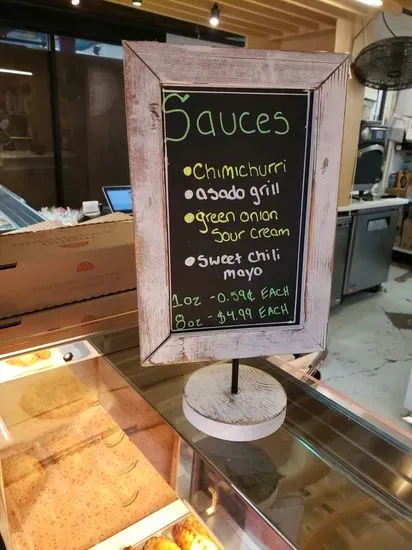 Sauces
• Chimichurri
• asado grill
• green onion
sour cream
• sweet chili
mayo
1oz - 0.59¢ EACH
8oz - $4.99 EACH